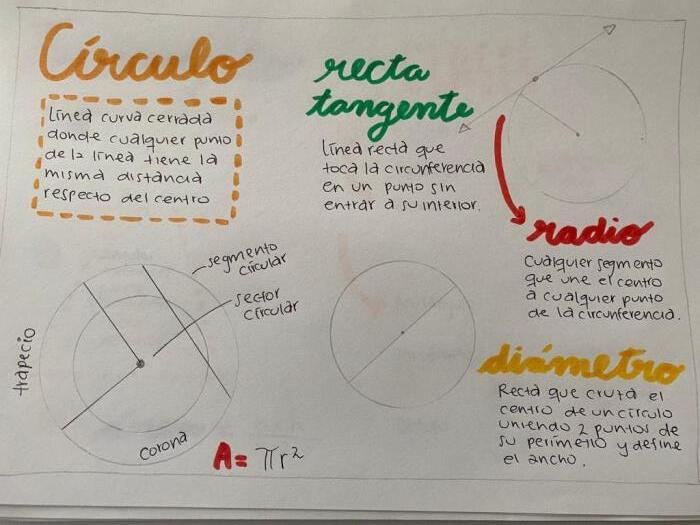 Círculo
Línea curva cerrada
donde cualquier punto
de la línea tiene la
misma distancia
respecto del centro
recta
tangente
Línea recta que
toca la circunferencia
en un punto sin
entrar a su interior.
radio
Cualquier segmento
que une el centro
a cualquier punto
de la circunferencia.
segmento
circular
sector
circular
trapecio
corona
A= πr²
diámetro
Recta que cruza el
centro de un círculo
uniendo 2 puntos de
su perímetro y define
el ancho.